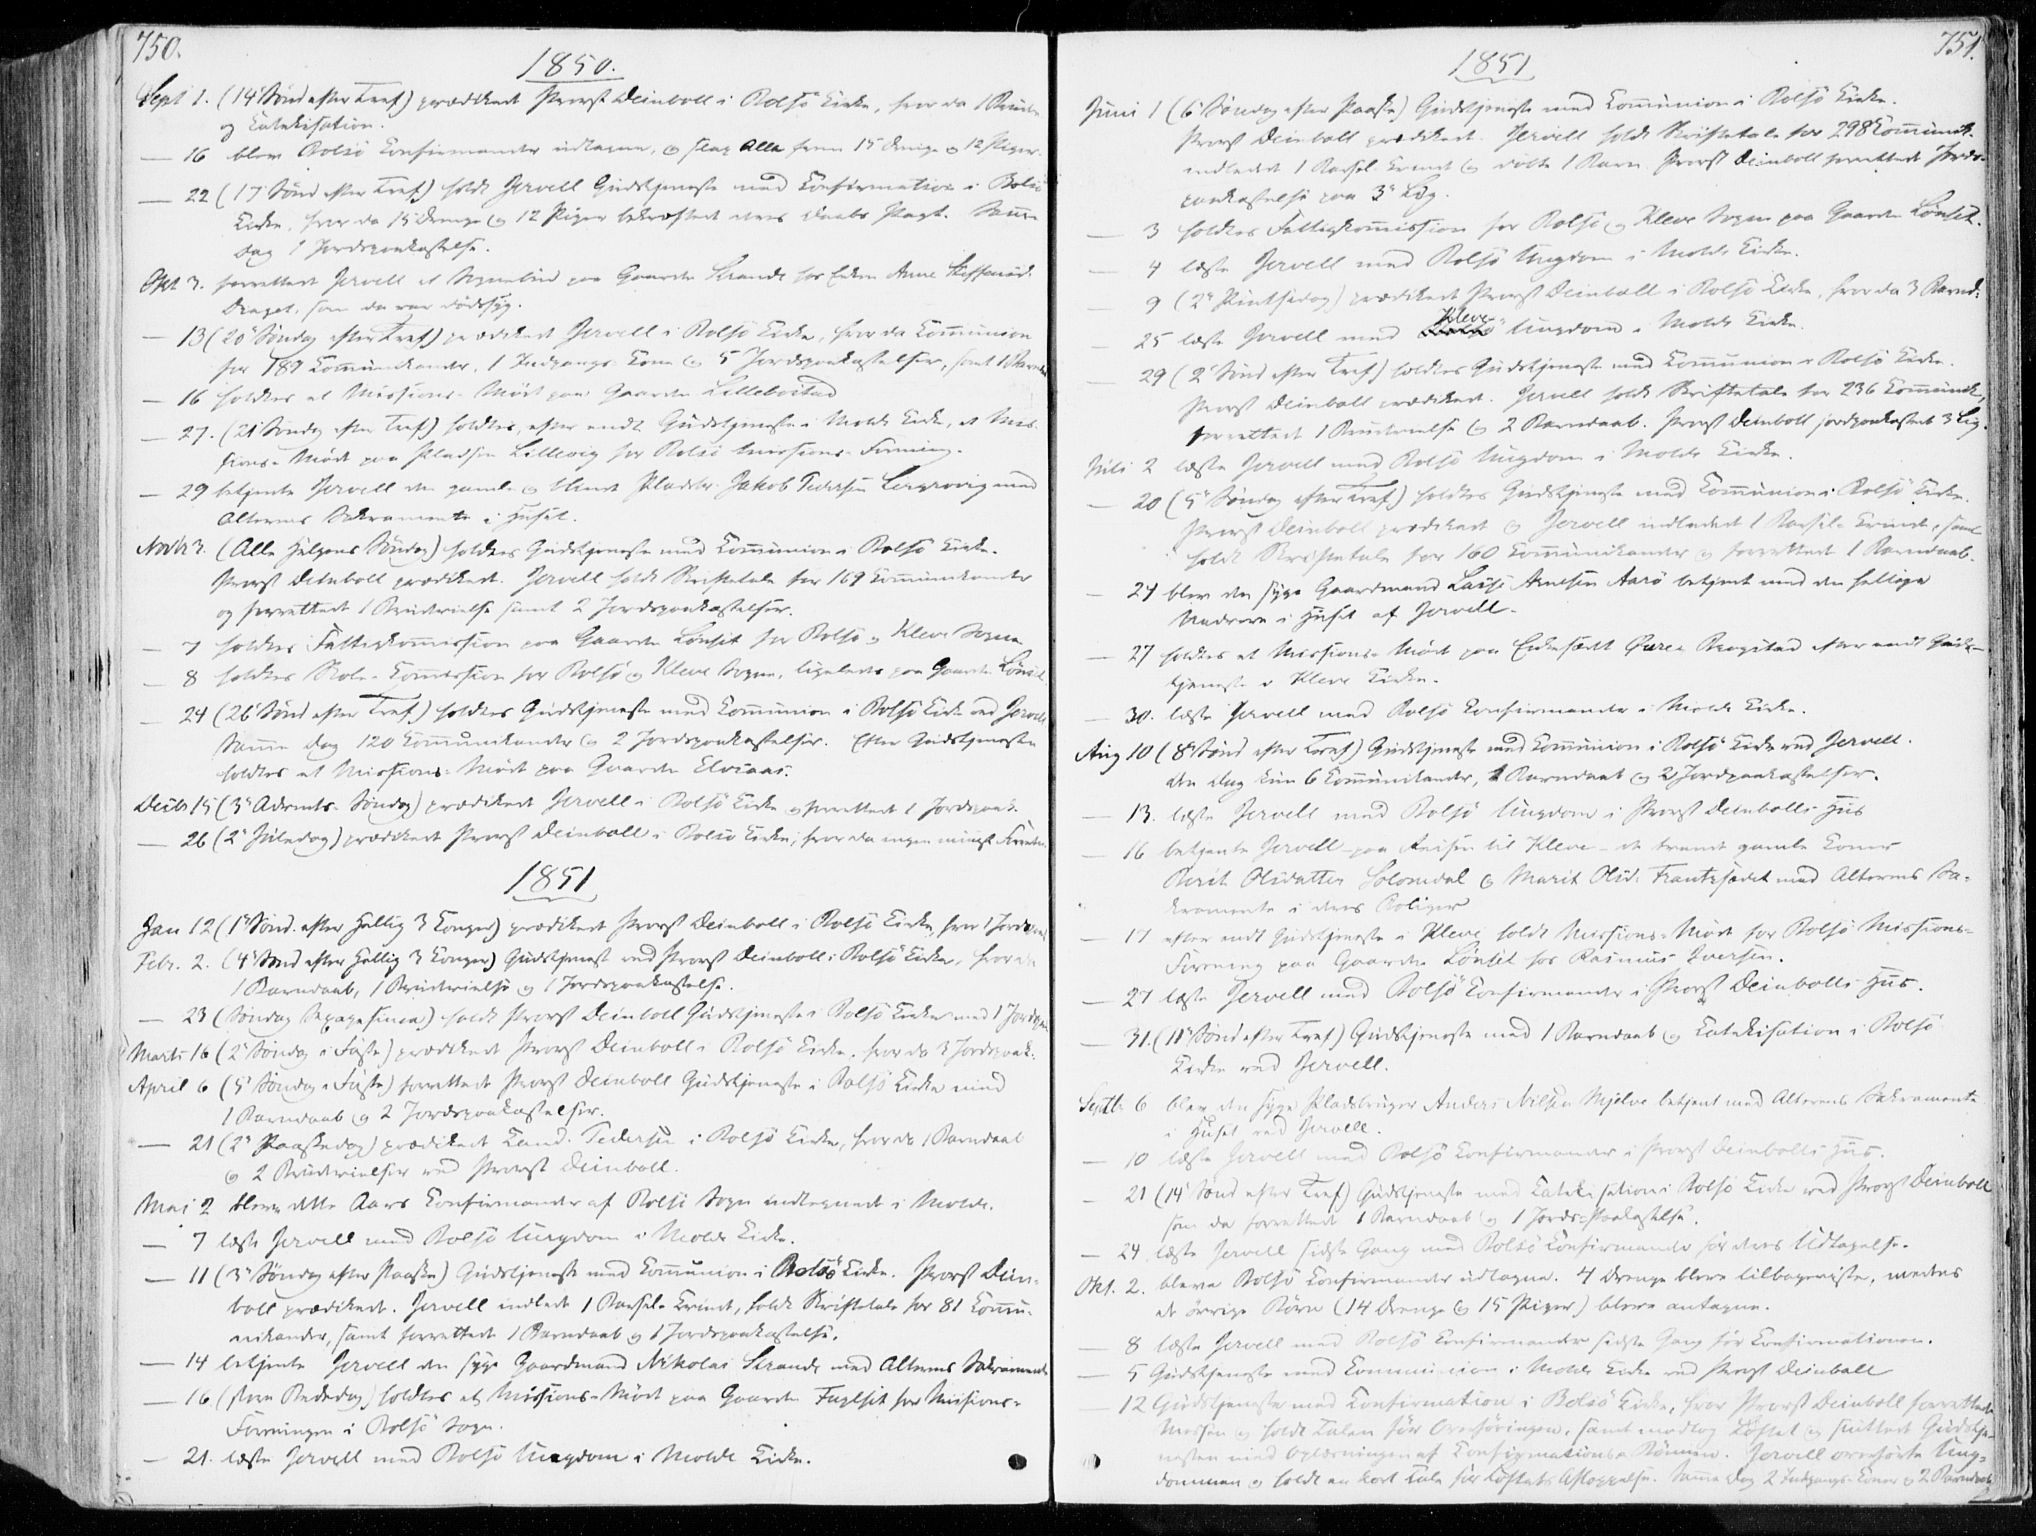 750.
1850.
Sept 1. (14 Sønd efter Tref) prædikede Provst Deinboll i Bolsø Kirke, hvor da 1 
og Katekisation.
— 16 bleve Bolsø Konfirmander udtagne, og slap Alle frem 15 Drenge og 12 Piger.
— 22 (17 Sønd efter Tref) holdt Jervell Gudstjeneste med Konfirmation i Bolsø
Kirke, hvor da 15 Drenge og 12 Piger bekræftede deres Daabs Pagt. Samme
Dag 1 Jordspaakastelse.
Okt 3. forrettede Jervell et Sognebud paa Gaarden Strande for Enken Anne Steffensd.
Draget, som da var dødssyg.
— 13 (20 Søndag efter Tref) prædikede Jervell i Bolsø Kirke, hvor da Kommunion
for 189 Kommunikander, 1 Indgangs-Kone og 5 Jordspaakastelser, samt
— 16 holdtes et Missions-Møde paa Gaarden Lillebostad
— 27. (21 Søndag efter Tref) holdtes, efter endt Gudstjeneste i Molde Kirke, et Mis-
sions-Møde paa Pladsen Lillevig for Bolsø Missions-Forening.
— 29 betjente Jervell den gamle og blinde Pladsbr. Jakob Pedersen Lergrovig med
Alterens Sakramente i Huset.
Novbr 3. (Alle Helgens Søndag) holdtes Gudstjeneste med Kommunion i Bolsø Kirke.
Provst Deinboll prædikede. Jervell holdt Skriftetale for 169 Kommunikander
og forrettede 1 Brudevielse samt 2 Jordspaakastelser.
— 7 holdtes Fattigkommission paa Gaarden Lønset for Bolsø og Kleve Sogne
— 8 holdtes Skole-Kommission for Bolsø og Kleve Sogne, ligeledes paa Gaarden Lønset
— 24 (26 Sønd efter Tref.) holdtes Gudstjeneste med Kommunion i Bolsø Kirke ved Jervell
Samme Dag 120 Kommunikander og 2 Jordspaakastelser. Efter Gudstjenesten
holdtes et Missions-Møde paa Gaarden Elvsaas.
Decbr 15 (3 Advents-Søndag) prædikede Jervell i Bolsø Kirke og forrettede 1 Jordspaak.
— 26 (2 Juledag) prædikede Provst Deinboll i Bolsø Kirke, hvor da ingen
1851
Jan 12 (1 Sønd. efter Hellig 3 Konger) prædikede Provst Deinboll i Bolsø Kirke, hvor 1 Jordspaak
Febr. 2. (4 Sønd efter Hellig 3 Konger) Gudstjeneste ved Provst Deinboll i Bolsø Kirke, hvor da
1 Barndaab, 1 Brudevielse og 1 Jordspaakastelse.
— 23 (Søndag Sexagesima) holdt Provst Deinboll Gudstjeneste i Bolsø Kirke med 1 Jordspaa
Marts 16 (2 Søndag i Faste) prædikede Provst Deinboll i Bolsø Kirke, hvor da 3 Jordspaak.
April 6 (5 Søndag i Faste) forrettede Provst Deinboll Gudstjeneste i Bolsø Kirke med
1 Barndaab og 2 Jordspaakastelser.
— 21 (2 Paaskedag) prædikede Kand. Pedersen i Bolsø Kirke, hvor da 1 Barndaab
og 2 Brudevielser ved Provst Deinboll.
Mai 2 bleve dette Aars Konfirmander af Bolsø Sogn indtegnede i Molde.
— 7 læste Jervell med Bolsø Ungdom i Molde Kirke.
— 11 (3 Søndag efter Paaske) Gudstjeneste med Kommunion i Bolsø Kirke. Provst Dein-
boll prædikede. Jervell indledte 1 Barsel-Kvinde, holdt Skriftetale for 81 Kommu-
nikander, samt forrettede 1 Barndaab og 1 Jordspaakastelse.
— 14 betjente Jervell den syge Gaardmand Nikolai Strande med Alterens Sakramente
— 16. (store Bededag) holdtes et Missions-Møde paa Gaarden Fuglset for Missions-
Foreningen i Bolsø Sogn.
— 21. læste Jervell med Bolsø Ungdom i Molde Kirke.
751.
1851
Juni 1 (6 Søndag efter Paaske) Gudstjeneste med Kommunion i Bolsø Kirke.
Provst Deinboll prædikede. Jervell holdt Skriftetale for 298 Kommunik.
indledede 1 Barsel-Kvinde og døbte 1 Barn. Provst Deinboll forrettede Jords-
paakastelse paa 3 Lig.
— 3 holdtes Fattigkommission for Bolsø og Kleve Sogne paa Gaarden Lønset.
— 4 læste Jervell med Bolsø Ungdom i Molde Kirke.
— 9 (2 Pintsedag) prædikede Provst Deinboll i Bolsø Kirke, hvor da 3 Barnd.
— 25 læste Jervell med Kleve Ungdom i Molde Kirke.
— 29 (2 Sønd efter Tref) holdtes Gudstjeneste med Kommunion i Bolsø Kirke.
Provst Deinboll prædikede. Jervell holdt Skriftetale for 236 Kommunik,
forrettede 1 Brudevielse og 2 Barndaab. Provst Deinboll jordpaakastede 3 Lig.
Juli 2 læste Jervell med Bolsø Ungdom i Molde Kirke.
— 20 (5 Søndag efter Tref) holdtes Gudstjeneste med Kommunion i Bolsø Kirke.
Provst Deinboll prædikede og Jervell indledede 1 Barsel-Kvinde, samt
holdt Skriftetale for 160 Kommunikander og forrettede 1 Barndaab.
— 24 blev den syge Gaardmand Lasse Arnesen Aarø betjent med den hellige
Nadvere i Huset af Jervell.
— 27 holdtes et Missions-Møde paa Enkesædet Øvre Bragstad efter endt Guds-
tjeneste i Kleve Kirke.
— 30. læste Jervell med Bolsø Konfirmander i Molde Kirke.
Aug 10 (8 Sønd efter Tref) Gudstjeneste med Kommunion i Bolsø Kirke ved Jervell.
den Dag kun 6 Kommunikander, 1 Barndaab og 2 Jordpaakastelser.
— 13. læste Jervell med Bolsø Ungdom i Provst Deinbolls Hus
— 16 betjente Jervell – paa Reisen til Kleve – de tvende gamle Koner
Berit Olsdatter Solemdal og Marit Olsd. Frantzsædet med Alterens Sa-
kramente i deres Boliger
— 17 efter endt Gudstjeneste i Kleve holdt Missions-Møde for Bolsø Missions-
Forening paa Gaarden Lønset hos Rasmus Iversen.
— 27 læste Jervell med Bolsø Konfirmander i Provst Deinbolls Hus.
— 31. (11 Sønd efter Tref) Gudstjeneste med 1 Barndaab og Katekisation i Bolsø
Kirke ved Jervell.
Septbr 6 blev den syge Pladsbruger Anders Nilsen Mjelve betjent med Alterens Sakramente
i Huset ved Jervell.
— 10 læste Jervell med Bolsø Konfirmander i Provst Deinbolls Hus.
— 21 (14 Sønd efter Tref) Gudstjeneste med Katekisation i Bolsø Kirke ved Provst Deinboll
som da forrettede 1 Barndaab og 1 Jords-Paakastelse.
— 24 læste Jervell sidste Gang med Bolsø Konfirmander før deres Udtagelse.
Okt. 2. bleve Bolsø Konfirmander udtagne. 4 Drenge bleve tilbageviste, medens
de øvrige Børn (14 Drenge og 15 Piger) bleve antagne.
— 8 læste Jervell med Bolsø Konfirmander sidste Gang før Konfirmationen.
— 5 Gudstjeneste med Kommunion i Molde Kirke ved Provst Deinboll
— 12 Gudstjeneste med Konfirmation i Bolsø Kirke, hvor Provst Deinboll forrettede
Messen og holdt Talen før Overhøringen, samt modtog Løftet og sluttede Gudstje-
nesten med Oplæsningen af Konfirmations-Bønnen. Jervell overhørte Ung-
dommen og holdt en kort Tale før Løftets Aflæggelse. Samme Dag 2 Indgangs-Koner og 2 Barndaab